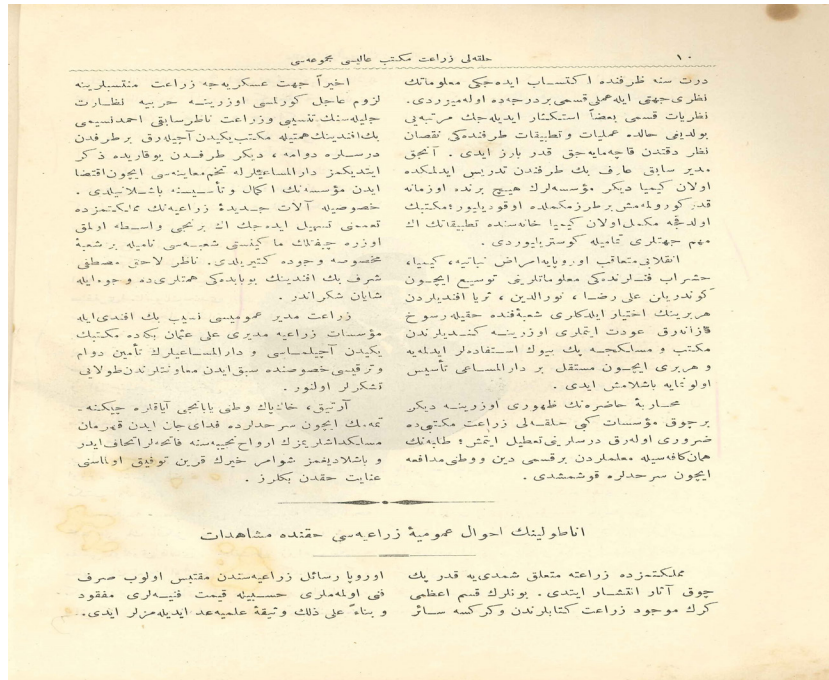 ١٠
حلقه‌لی زراعت مكتب عالیسی مجموعه‌سی
درت سنه ظرفنده اكتساب ایده‌جكی معلوماتك
نظری جهتی ایله عملی قسمی بردرجه‌ده اوله‌میوردی.
نظریات قسمی بعضاً استكثار ایدیله‌جك مرتبه‌یی
بولدیغی حالده عملیات و تطبیقات طرفنده‌كی نقصان
نظر دقتدن قاچه‌مایه‌جق قدر بارز ایدی . آنجق
مدیر سابق عارف بك طرفندن تدریس ایدلمكده
اولان كیمیا دیگر مؤسسه‌لرك هیچ برنده اوزمانه
قدر كورولمه‌مش برطرز مكملده اوقودیلیور ؛ مكتبك
اولدقجه مكمل اولان كیمیا خانه‌سنده تطبیقاتك اك
مهم جهتلری تمامیله كوستریلیوردی .
انقلابی متعاقب اوروپایه امراض نباتیه ، كیمیا ،
حشرات فنلرنده‌كی معلوماتلرینی توسیع ایچون
كوندریلن علی رضا ، نورالدین ، ثریا افندیلردن
هربرینك اختیار ایلدكلری شعبهٔ فنده حقیله رسوخ
قازانه‌رق عودت ایتملری اوزرینه كندیلرندن
مكتب و مسلكجه پك بیوك استفاده‌لر ایدلمه‌یه
و هربری ایچون مستقل بر دارالمساعی تأسیس
اولونمایه باشلامش ایدی .
محاربهٔ حاضره‌نك ظهوری اوزرینه دیگر
برچوق مؤسسات كبی حلقه‌لی زراعت مكتبی‌ده
ضروری اوله‌رق درسلرینی تعطیل ایتمش ؛ طلبه‌نك
همان كافه‌سیله معلملردن برقسمی دین و وطنی مدافعه
ایچون سرحدلره قوشمشدی .
اخیراً جهت عسكریه‌جه زراعت منتسبلرینه
لزوم عاجل كورلمسی اوزرینه حربیه نظارت
جلیله‌سنك تنسیبی و زراعت ناظر سابقی احمد نسیمی
بك افندینك همتیله مكتب یكیدن آچیله‌رق برطرفدن
درسلره دوامه ، دیگر طرفدن یوقاریده ذكر
ایتدیكمز دارالمساعیلرله تخم معاینه‌سی ایچون اقتضا
ایدن مؤسسه‌نك اكمال و تأسیسنه باشلانیلدی .
خصوصیله آلات جدیدهٔ زراعیه‌نك مملكتمزده
تعممنی تسهیل ایده‌جك اك برنجی واسطه اولمق
اوزره چفتلك ماكینستی شعبه‌سی نامیله بر شعبهٔ
مخصوصه وجوده كتیریلدی . ناظر لاحق مصطفی
شرف بك افندینك بوبابده‌كی همتلری‌ده و جوه‌ایله
شایان شكراندر .
زراعت مدیر عمومیسی نسیب بك افندی‌ایله
مؤسسات زراعیه مدیری علی عثمان بكه‌ده مكتبك
یكیدن آچیلماسی و دارالمساعیلرك تأمین دوام
و ترقیسی خصوصنده سبق ایدن معاونتلرندن طولایی
تشكرلر اولنور .
آرتیق ، خاكپاك وطنی یابانجی آیاقلره چیكنه‌-
تمه‌مك ایچون سرحدلرده فدای‌جان ایدن قهرمان
مسلكداشلریمزك ارواح نجیبه‌سنه فاتحه‌لر اتحاف ایدر
و باشلادیغمز شو امر خیرك قرین توفیق اولماسنی
عنایت حقدن بكلرز .
اناطولینك احوال عمومیهٔ زراعیه‌سی حقنده مشاهدات
مملكتمزده زراعته متعلق شمدی‌یه قدر پك
چوق آثار انتشار ایتدی . بونلرك قسم اعظمی
كرك موجود زراعت كتابلرندن و كركسه سائر
اوروپا رسائل زراعیه‌سندن مقتبس اولوب صرف
فنی اولمه‌ملری حسبیله قیمت فنیه‌لری مفقود
و بناءً علی ذلك وثیقهٔ علمیه عد ایدیله‌مزلر ایدی.